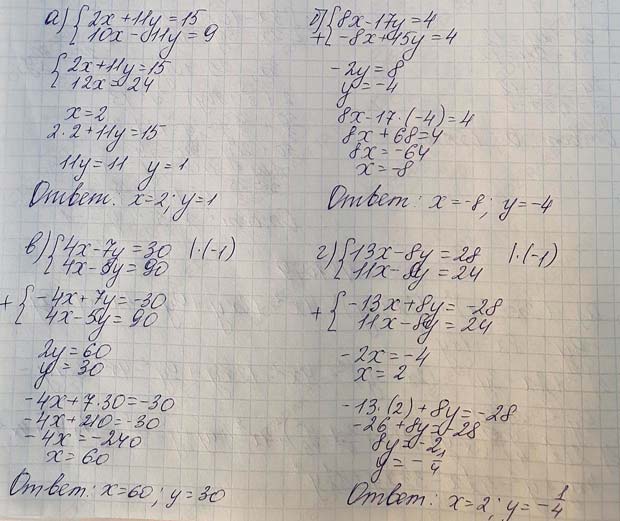 а) { 2x + 11y = 15
10x - 11y = 9
{ 2x + 11y = 15
12x = 24
x = 2
2·2 + 11y = 15
11y = 11 y = 1
Ответ: x = 2; y = 1
б) { 8x - 17y = 4
+ { -8x + 15y = 4
-2y = 8
y = -4
8x - 17·(-4) = 4
8x + 68 = 4
8x = -64
x = -8
Ответ: x = -8; y = -4
в) { 4x - 7y = 30 |·(-1)
4x - 5y = 90
+ { -4x + 7y = -30
4x - 5y = 90
2y = 60
y = 30
-4x + 7·30 = -30
-4x + 210 = -30
-4x = -240
x = 60
Ответ: x = 60; y = 30
г) { 13x - 8y = 28 |·(-1)
11x - 8y = 24
+ { -13x + 8y = -28
11x - 8y = 24
-2x = -4
x = 2
-13·(2) + 8y = -28
-26 + 8y = -28
8y = -2
y = -1/4
Ответ: x = 2; y = -1/4